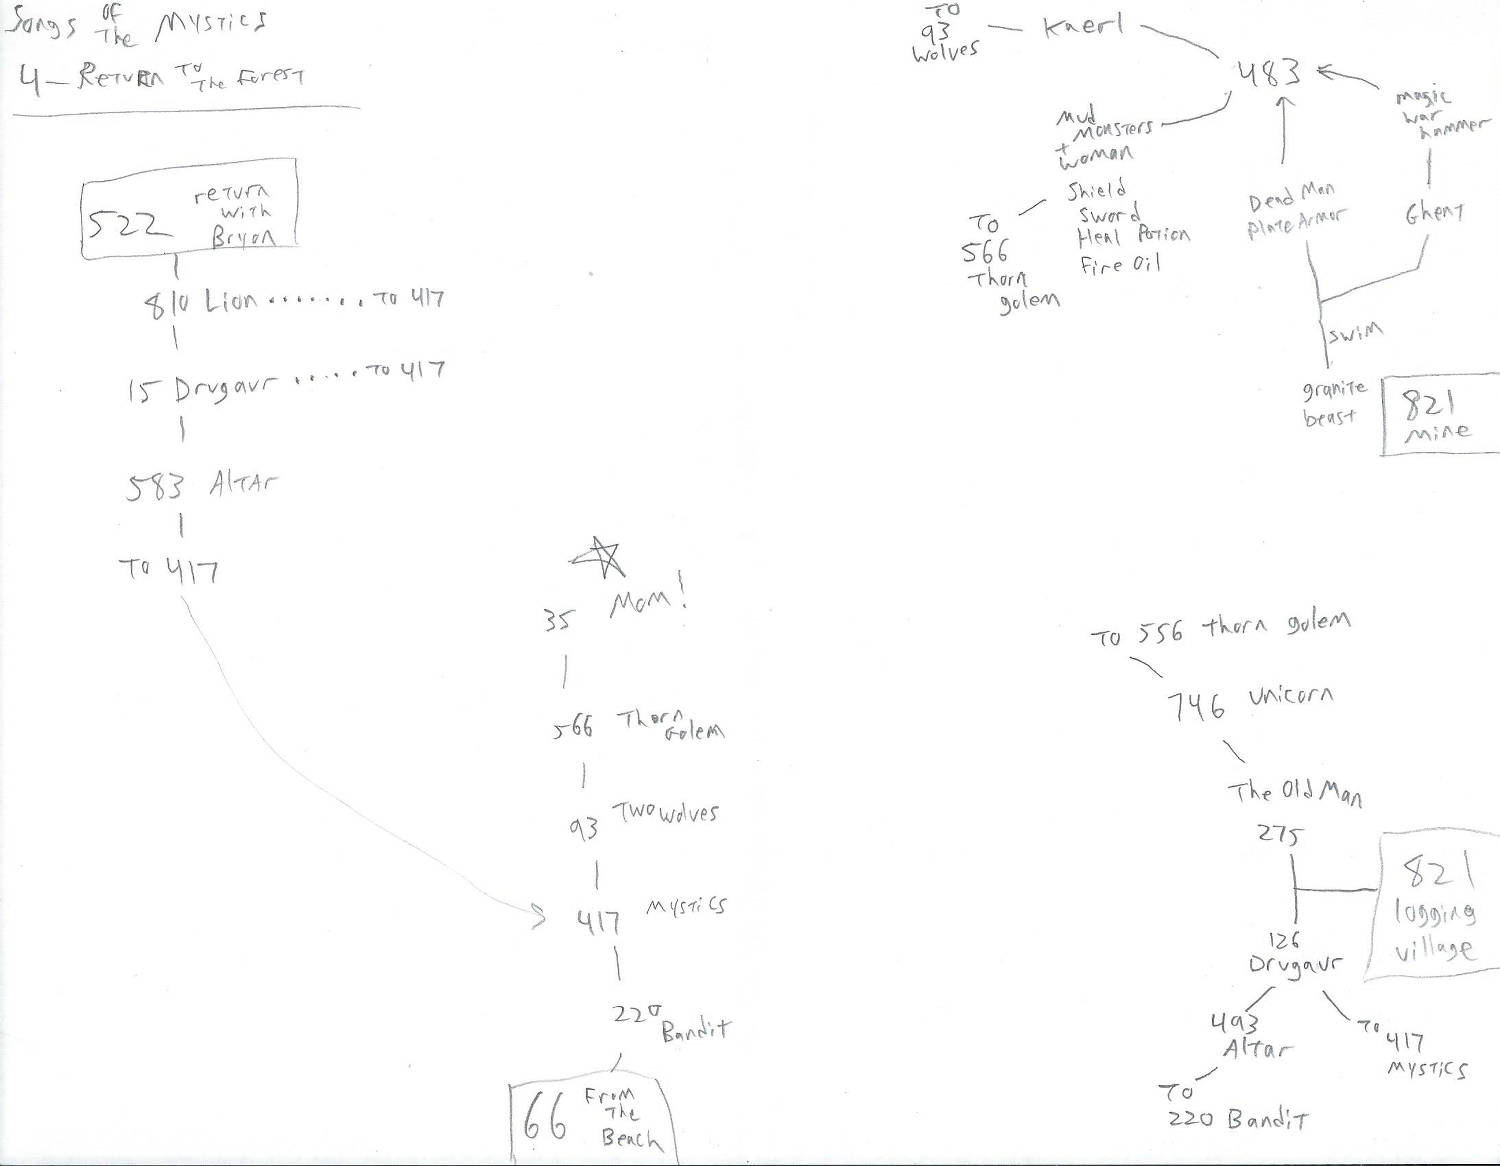 Songs OF The MYSTICS
4 - RETURN TO The FOREST
522 return
with
Bryon
810 Lion ....... TO 417
15 Drugaur ..... TO 417
583 AlTAr
TO 417
35 MOM!
566 Thorn
Golem
93 TWO wolves
417 MYSTICS
220 Bandit
66 From
The
Beach
TO
93
wolves
Kaerl
483
magic
war
hammer
Mud
Monsters
+
woman
Shield
Sword
Heal Potion
Fire Oil
TO
566
Thorn
golem
Dead Man
Plate Armor
Ghent
swim
granite
beast
821
mine
TO 556 thorn golem
746 unicorn
The Old Man
275
821
logging
village
126
Drugaur
493
Altar
TO
220 Bandit
TO
417
MYSTICS